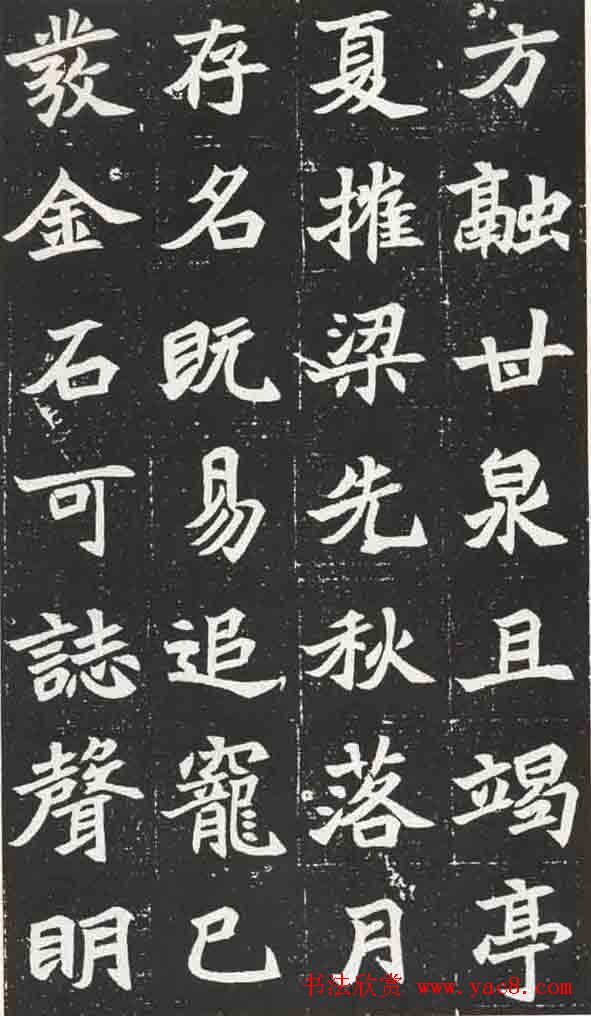 方融甘泉且竭亭
夏摧梁先秋落月
存名既易追寵已
發金石可誌聲明
书法欣赏 www.yac8.com